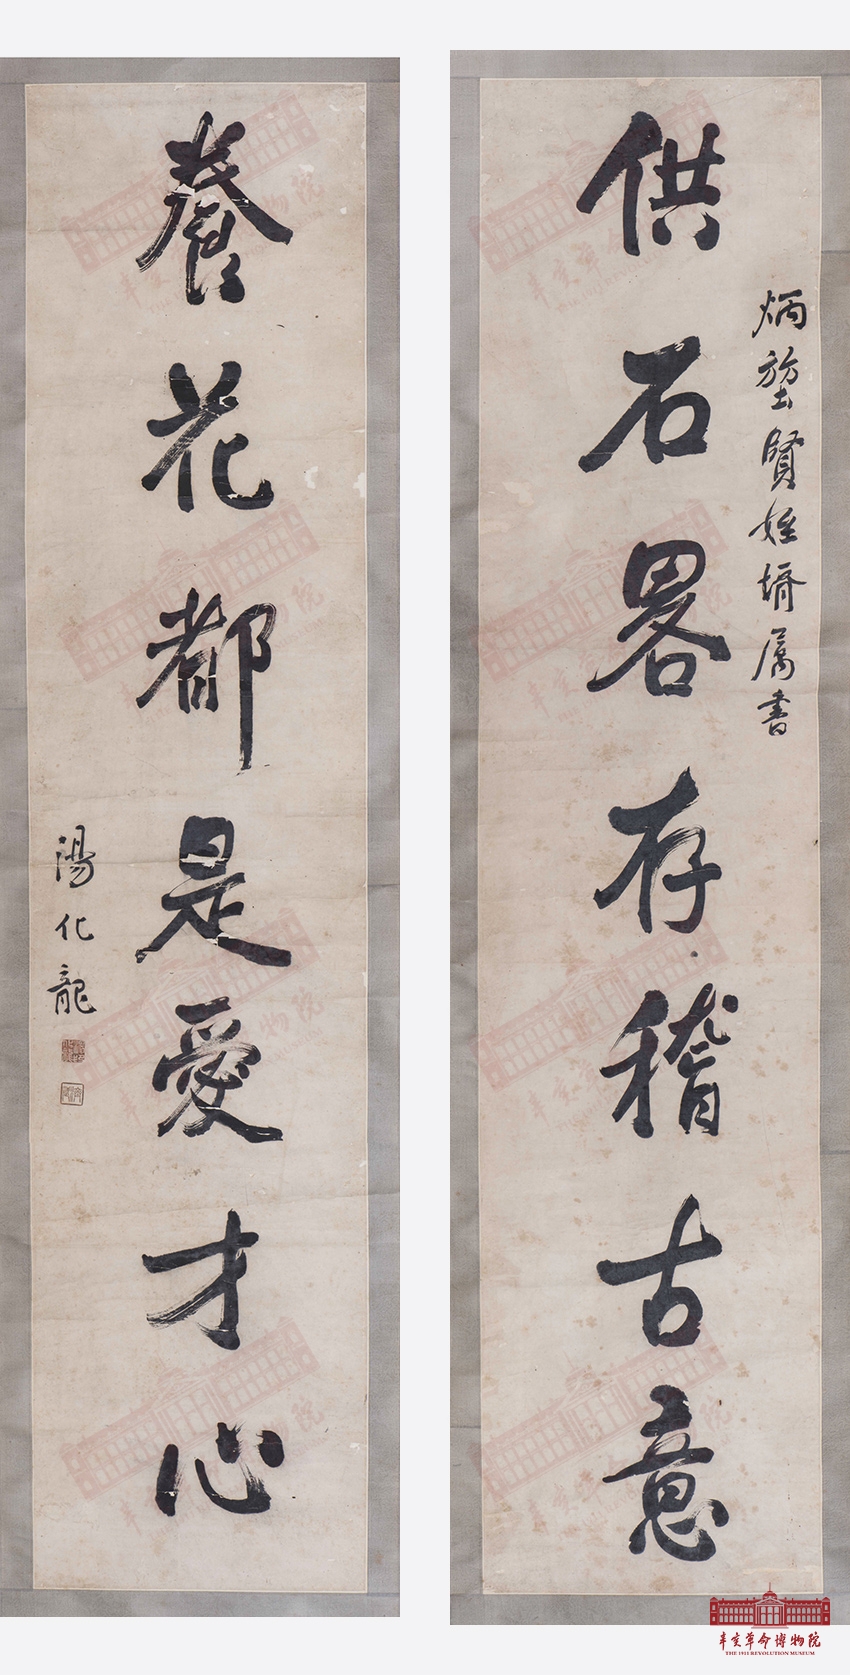 供石畧存稽古意
炳堃賢姪壻属書
養花都是愛才心
湯化龍
辛亥革命博物院
THE 1911 REVOLUTION MUSEUM